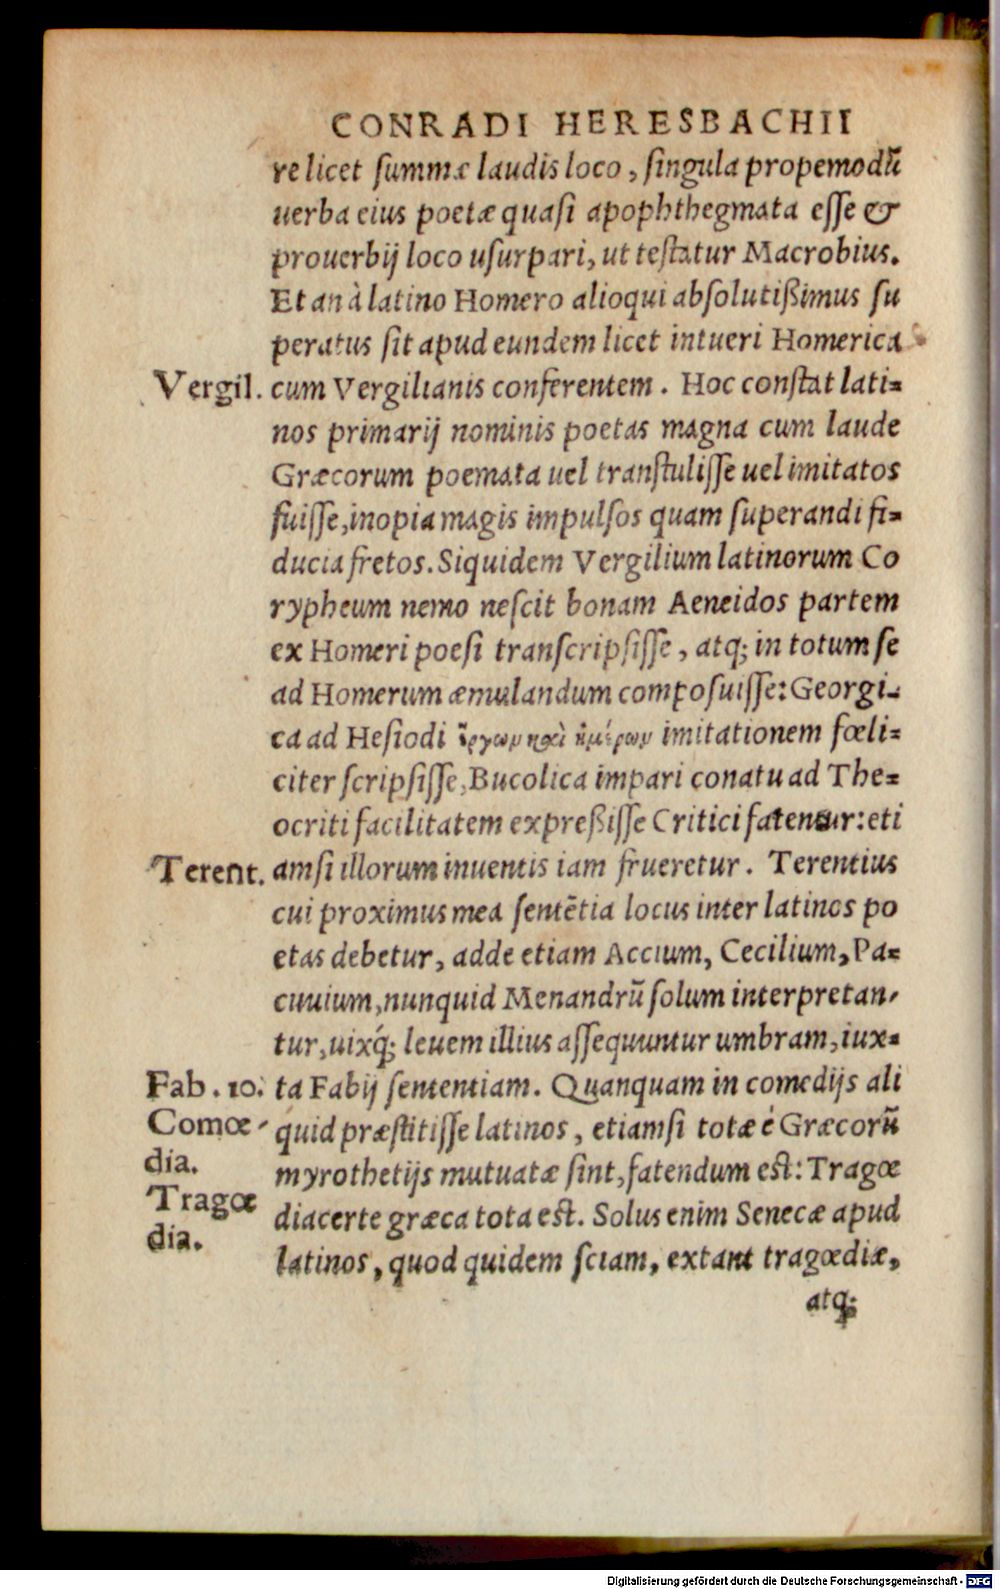 CONRADI HERESBACHII
re licet summæ laudis loco, singula propemodū
uerba eius poetæ quasi apophthegmata esse &
prouerbij loco usurpari, ut testatur Macrobius.
Et an à latino Homero alioqui absolutißimus su
peratus sit apud eundem licet intueri Homerica
Vergil. cum Vergilianis conferentem. Hoc constat lati=
nos primarij nominis poetas magna cum laude
Græcorum poemata uel transtulisse uel imitatos
fuisse, inopia magis impulsos quam superandi fi=
ducia fretos. Siquidem Vergilium latinorum Co
rypheum nemo nescit bonam Aeneidos partem
ex Homeri poesi transcripsisse, atq; in totum se
ad Homerum æmulandum composuisse: Georgi-
ca ad Hesiodi ἔργων καὶ ἡμέρων imitationem fœli=
citer scripsisse, Bucolica impari conatu ad The=
ocriti facilitatem expreßisse Critici fatentur: eti
Terent. amsi illorum inuentis iam frueretur. Terentius
cui proximus mea sentētia locus inter latinos po
etas debetur, adde etiam Accium, Cecilium, Pa=
cuuium, nunquid Menandrū solum interpretan-
tur, uixq́; leuem illius assequuntur umbram, iux=
Fab. 10. ta Fabij sententiam. Quanquam in comedijs ali
Comœ- quid præstitisse latinos, etiamsi totæ è Græcorū
dia. myrothetijs mutuatæ sint, fatendum est: Tragœ
Tragœ dia certe græca tota est. Solus enim Senecæ apud
dia. latinos, quod quidem sciam, extant tragœdiæ,
atq;
Digitalisierung gefördert durch die Deutsche Forschungsgemeinschaft - DFG